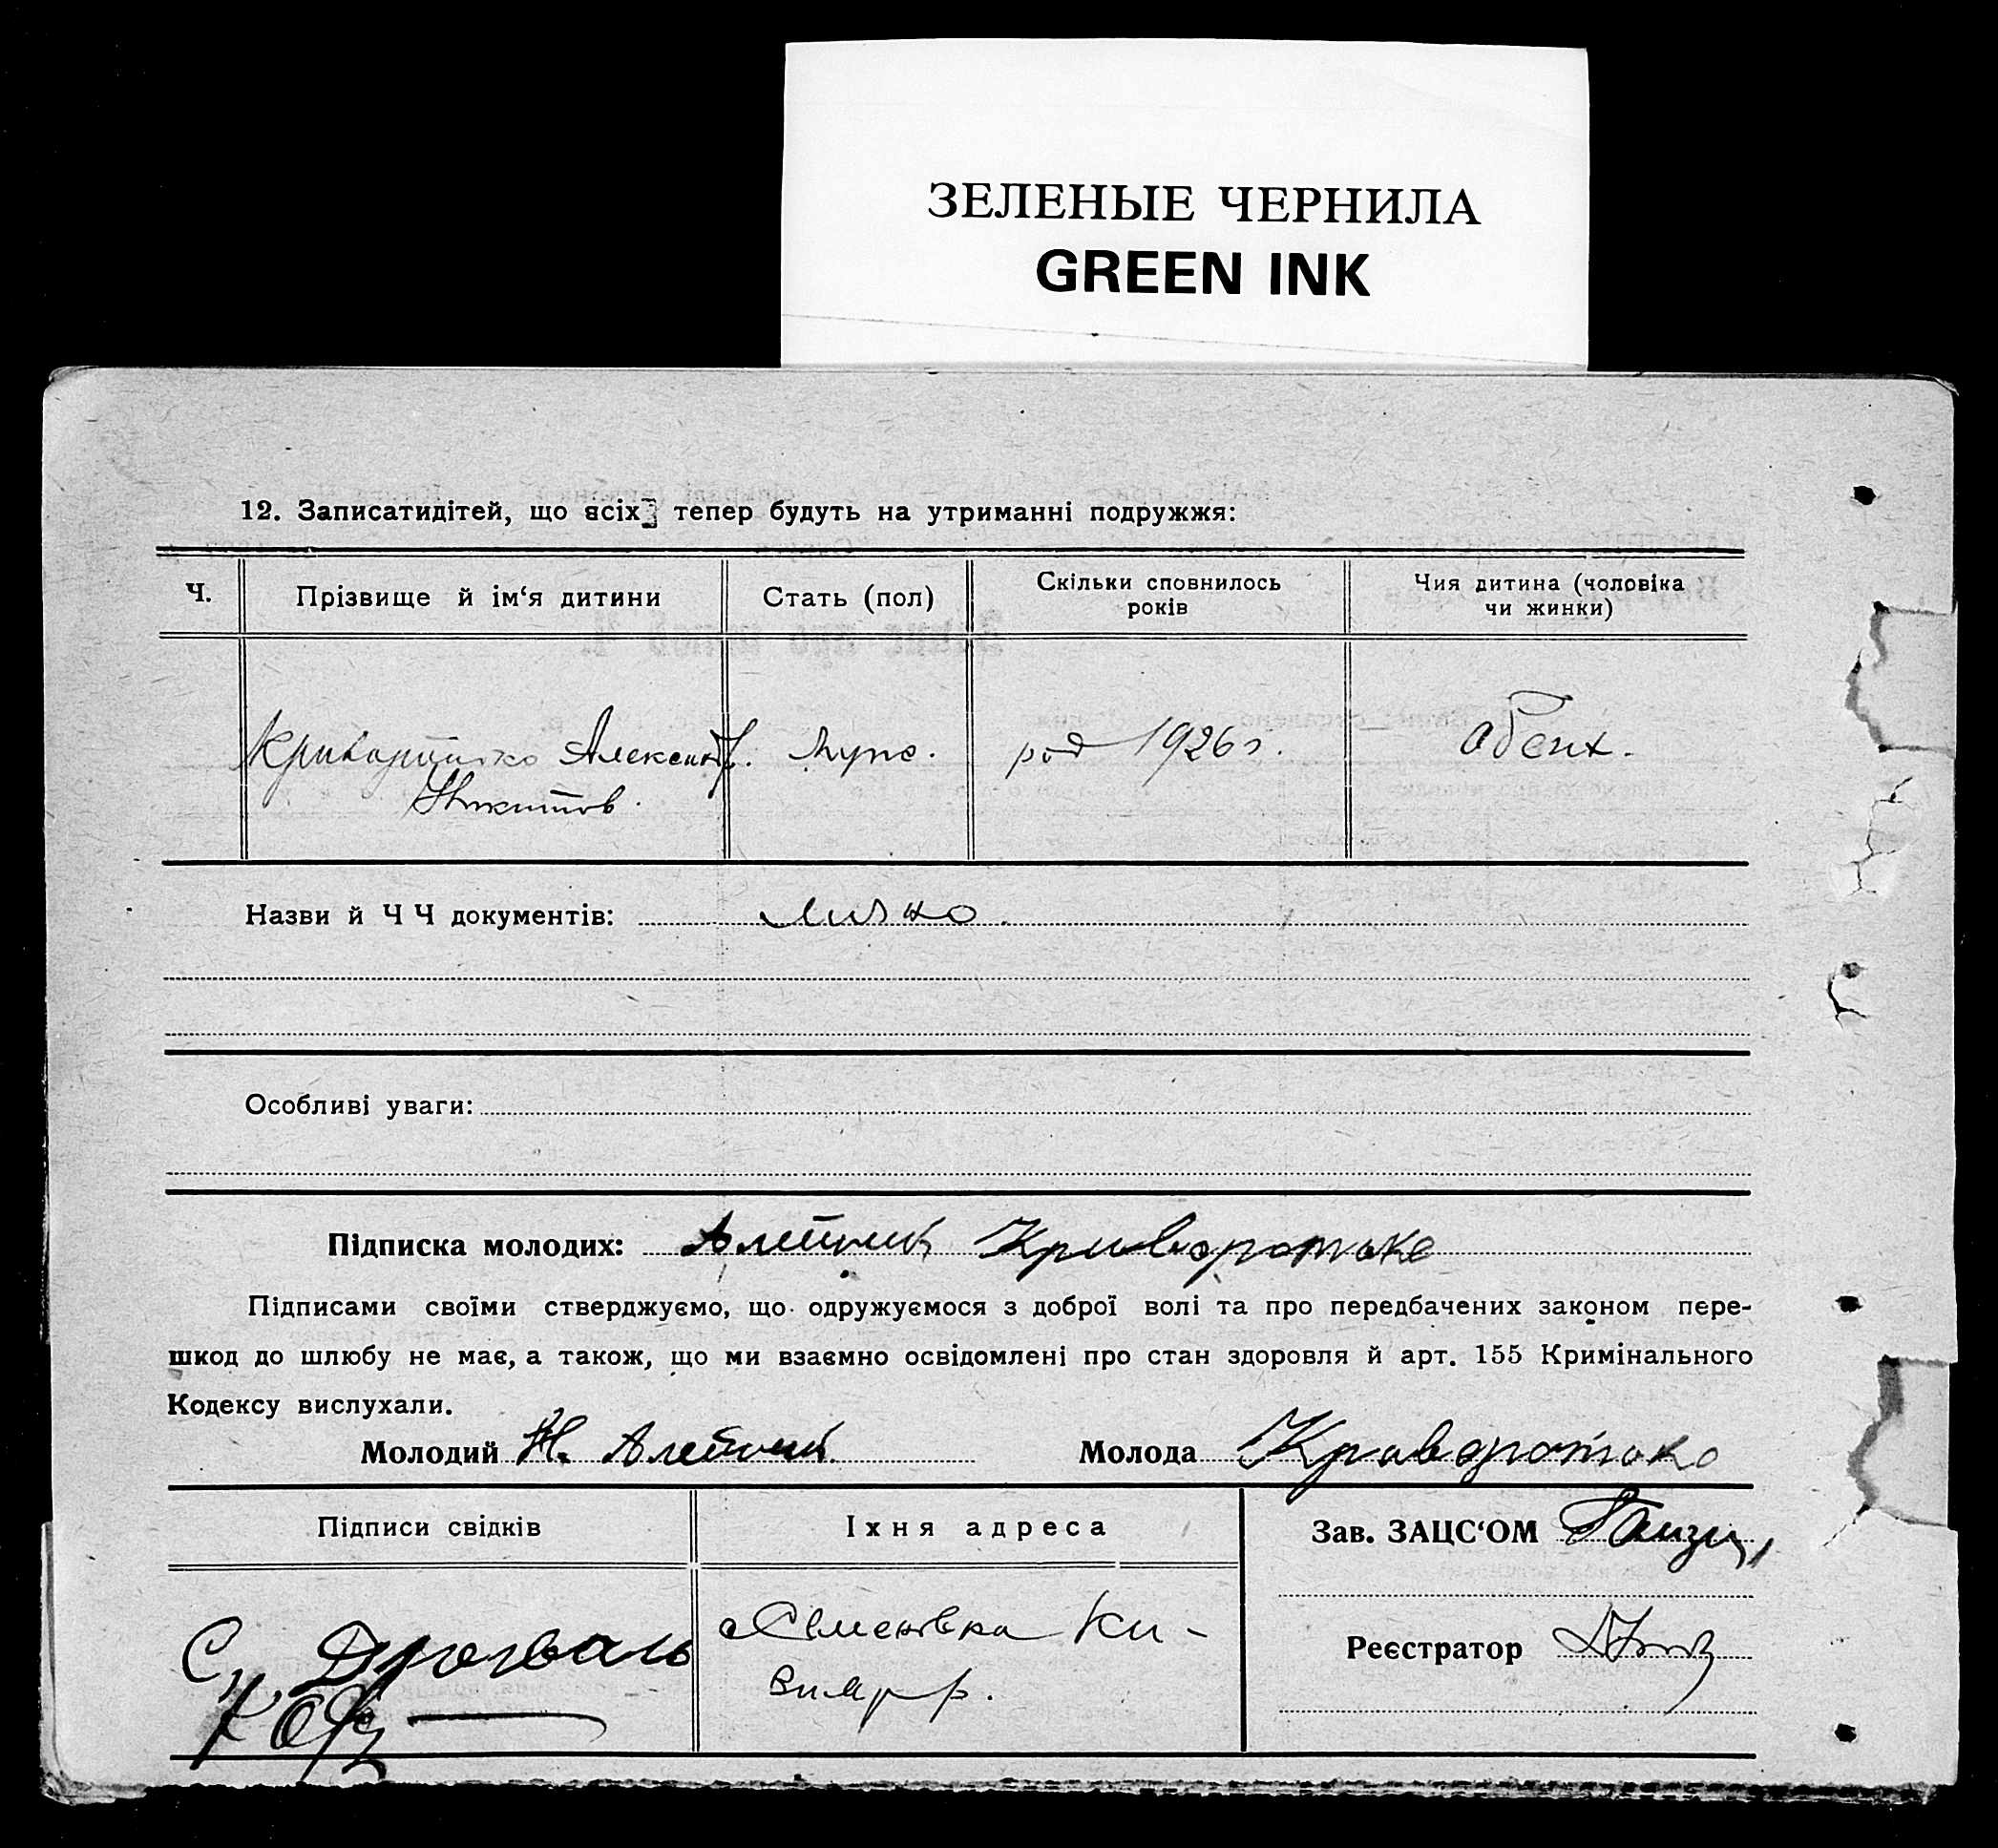 ЗЕЛЕНЫЕ ЧЕРНИЛА
GREEN INK
12. Записатидітей, що всіх тепер будуть на утриманні подружжя:
Ч. Прізвище й ім‘я дитини Стать (пол) Скільки сповнилось років Чия дитина (чоловіка чи жинки)
Криворотько Александ. муже. род 1926 г. обеих.
Никитов.
Назви й Ч Ч документів:
Особливі уваги:
Підписка молодих: Криворотько
Підписами своїми стверджуємо, що одружуємося з доброї волі та про передбачених законом пере-
шкод до шлюбу не має, а також, що ми взаємно освідомлені про стан здоровля й арт. 155 Кримінального
Кодексу вислухали.
Молодий Н. Молода Криворотько
Підписи свідків Їхня адреса Зав. ЗАЦС‘ОМ
Семеновка Ки-
Реєстратор